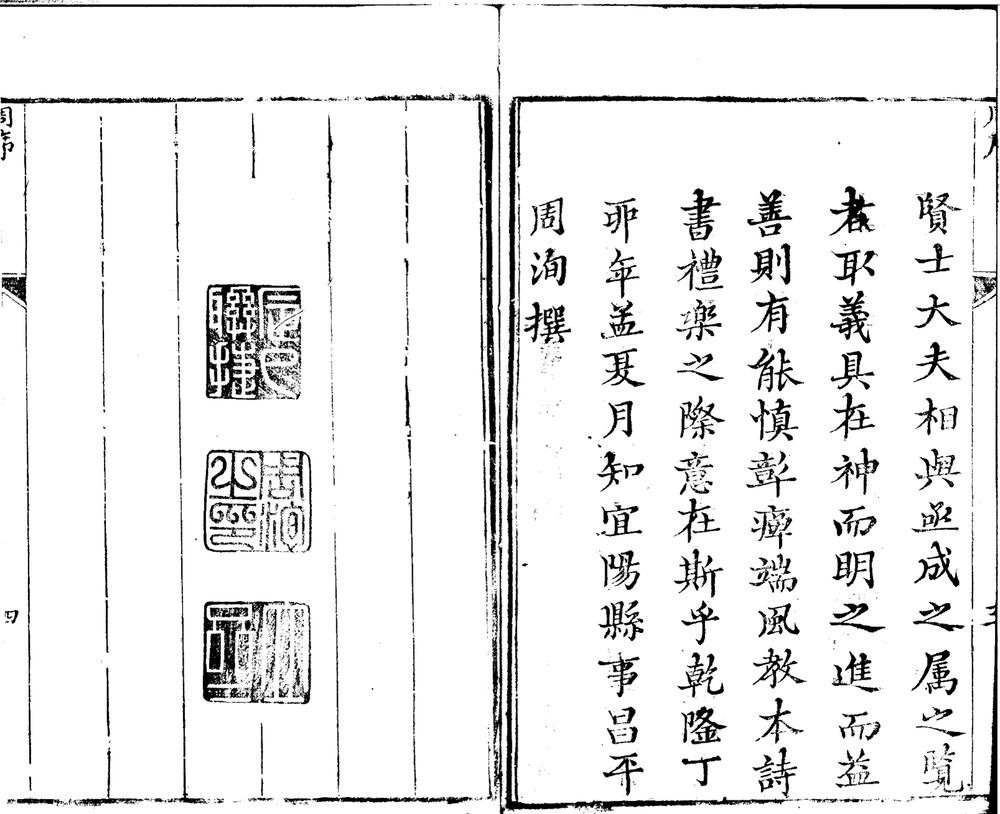 賢士大夫相與亟成之属之覧
者取義具在神而明之進而益
善則有能慎彰癉端風教本詩
書禮樂之際意在斯乎乾隆丁
卯年孟夏月知宜陽縣事昌平
周洵撰
周洵之印
周序
四